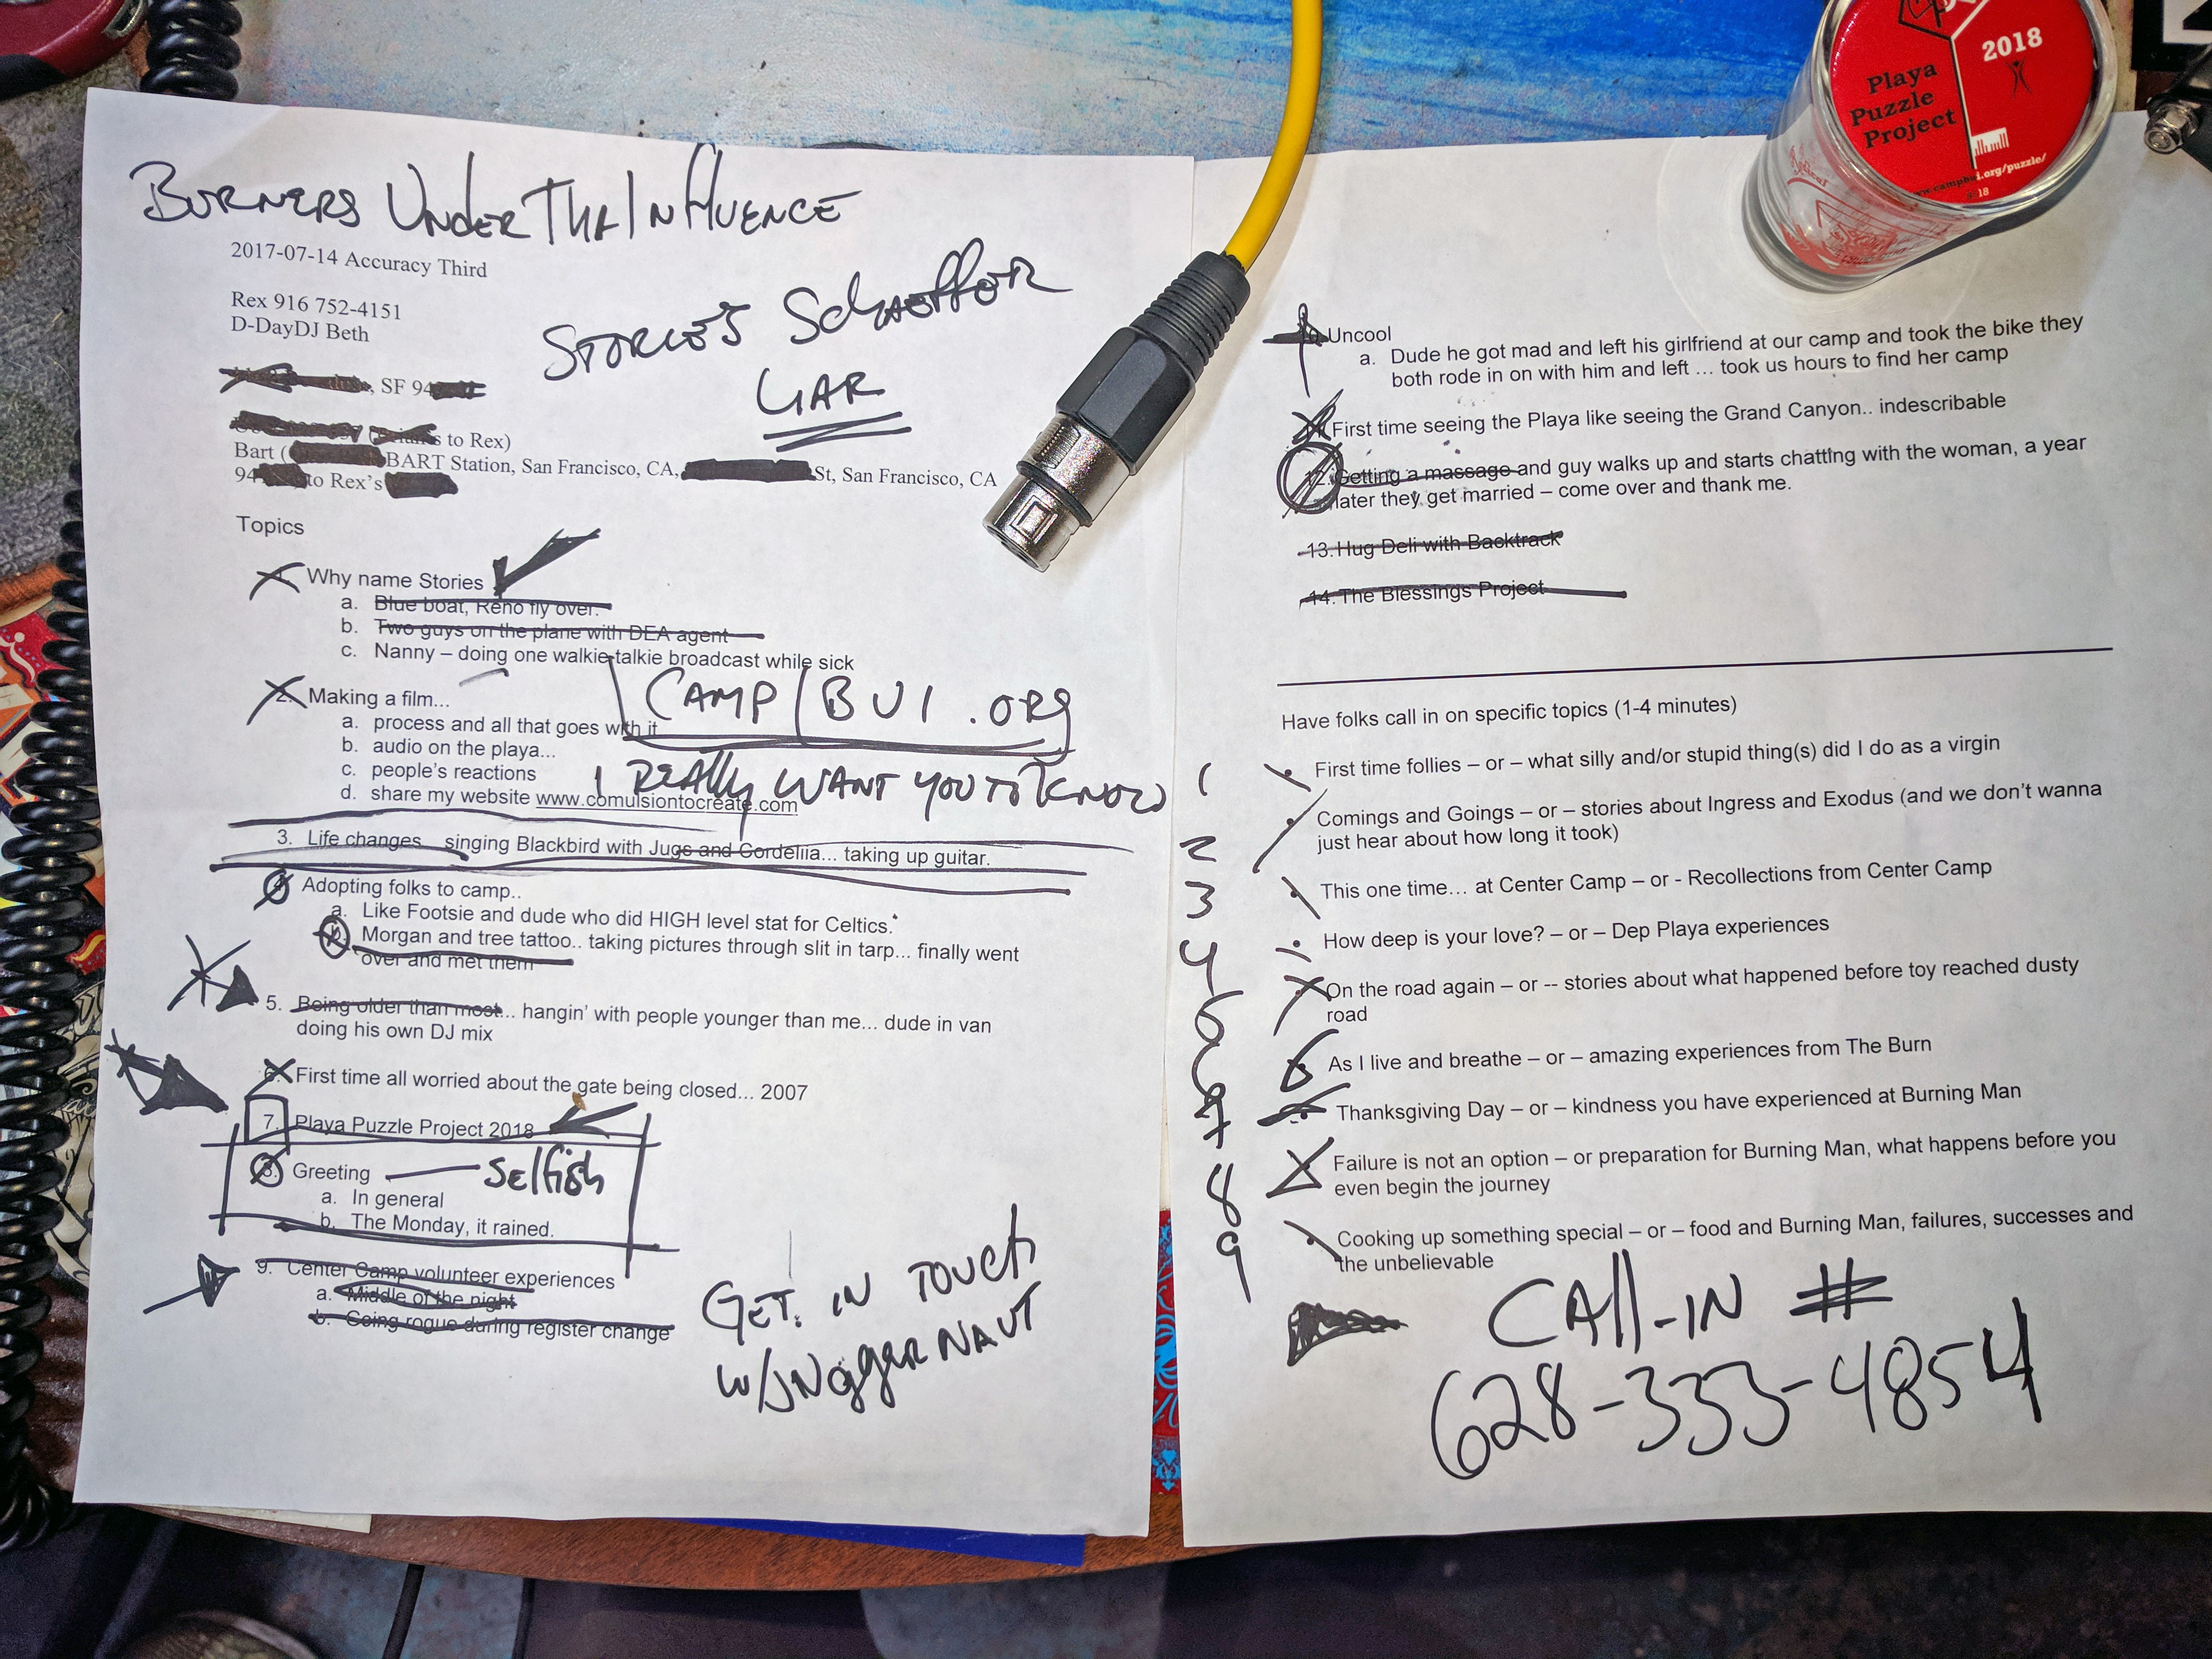 BURNERS UNDER THA INFLUENCE
2017-07-14 Accuracy Third
Rex 916 752-4151
D-DayDJ Beth
STORIES SCHAEFFOR
LIAR
, SF 94
to Rex)
Bart ( BART Station, San Francisco, CA, St, San Francisco, CA
94 to Rex's
Topics
1. Why name Stories
a. Blue boat, Reno fly over.
b. Two guys on the plane with DEA agent
c. Nanny – doing one walkie-talkie broadcast while sick
CAMP / BUI .ORG
2. Making a film...
a. process and all that goes with it
b. audio on the playa...
c. people's reactions
I REALLY WANT YOU TO KNOW
d. share my website www.comulsiontocreate.com
3. Life changes singing Blackbird with Jugs and Cordeliia... taking up guitar.
Adopting folks to camp..
a. Like Footsie and dude who did HIGH level stat for Celtics.
b. Morgan and tree tattoo.. taking pictures through slit in tarp... finally went
over and met them
5. Being older than most... hangin' with people younger than me... dude in van
doing his own DJ mix
6. First time all worried about the gate being closed... 2007
7. Playa Puzzle Project 2018
8. Greeting SElfish
a. In general
b. The Monday, it rained.
9. Center Camp volunteer experiences
a. Middle of the night
b. Going rogue during register change
GET. IN TOUCH
W/
Playa
Puzzle
Project
2018
www.campbui.org/puzzle/
18
Uncool
a. Dude he got mad and left his girlfriend at our camp and took the bike they
both rode in on with him and left ... took us hours to find her camp
First time seeing the Playa like seeing the Grand Canyon.. indescribable
12. Getting a massage and guy walks up and starts chatting with the woman, a year
later they get married – come over and thank me.
13. Hug Deli with Backtrack
14. The Blessings Project
Have folks call in on specific topics (1-4 minutes)
1 First time follies – or – what silly and/or stupid thing(s) did I do as a virgin
2 Comings and Goings – or – stories about Ingress and Exodus (and we don't wanna
just hear about how long it took)
3 This one time... at Center Camp – or - Recollections from Center Camp
4 How deep is your love? – or – Dep Playa experiences
On the road again – or -- stories about what happened before toy reached dusty
road
6 As I live and breathe – or – amazing experiences from The Burn
7 Thanksgiving Day – or – kindness you have experienced at Burning Man
8 Failure is not an option – or preparation for Burning Man, what happens before you
even begin the journey
9 Cooking up something special – or – food and Burning Man, failures, successes and
the unbelievable
CAll-IN #
628-333-4854